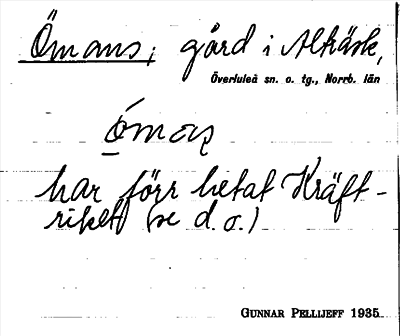 Ömans; gård i Alträsk,
Överluleå sn. o. tg., Norrb. län
Ómas
har förr hetat Kräft-
riket (se d. o.)
GUNNAR PELLIJEFF 1935